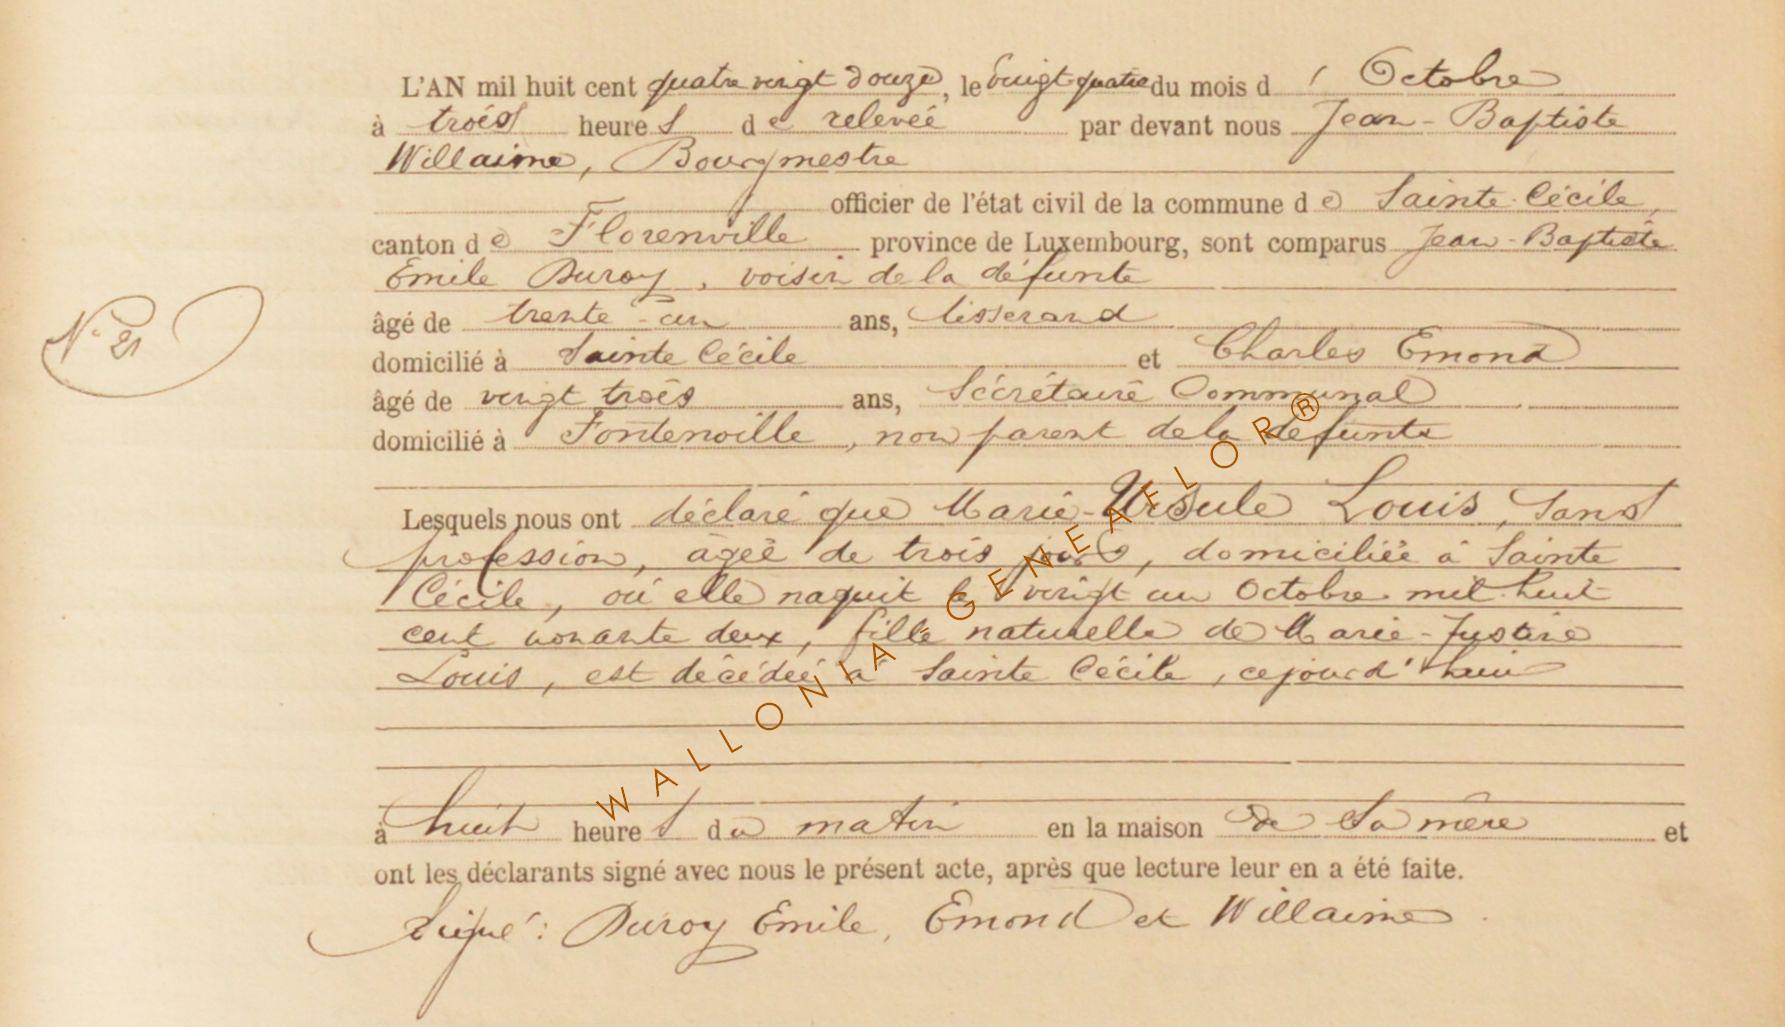 L'AN mil huit cent quatre vingt douze, le vingt-quatre du mois d' Octobre
à trois heures de relevée par devant nous Jean-Baptiste
Willaime, Bourgmestre
officier de l'état civil de la commune de Sainte-Cécile,
canton de Florenville province de Luxembourg, sont comparus Jean-Baptiste
Emile Duroy, voisin de la défunte
âgé de trente-un ans, tisserand
domicilié à Sainte Cécile et Charles Emond
N° 21
âgé de vingt trois ans, Sécrétaire Communal
domicilié à Fontenoille, non parent de la défunte
Lesquels nous ont déclaré que Marie-Ursule Louis, sans
profession, âgée de trois jours, domiciliée à Sainte
Cécile, où elle naquit le vingt un Octobre mil huit
cent nonante deux, fille naturelle de Marie-Justine
Louis, est décédée à Sainte Cécile, cejourd'hui
à huit heures du matin en la maison de sa mère et
ont les déclarants signé avec nous le présent acte, après que lecture leur en a été faite.
Signé: Duroy Emile, Emond et Willaime.
WALLONIA - GENEAFLOR®